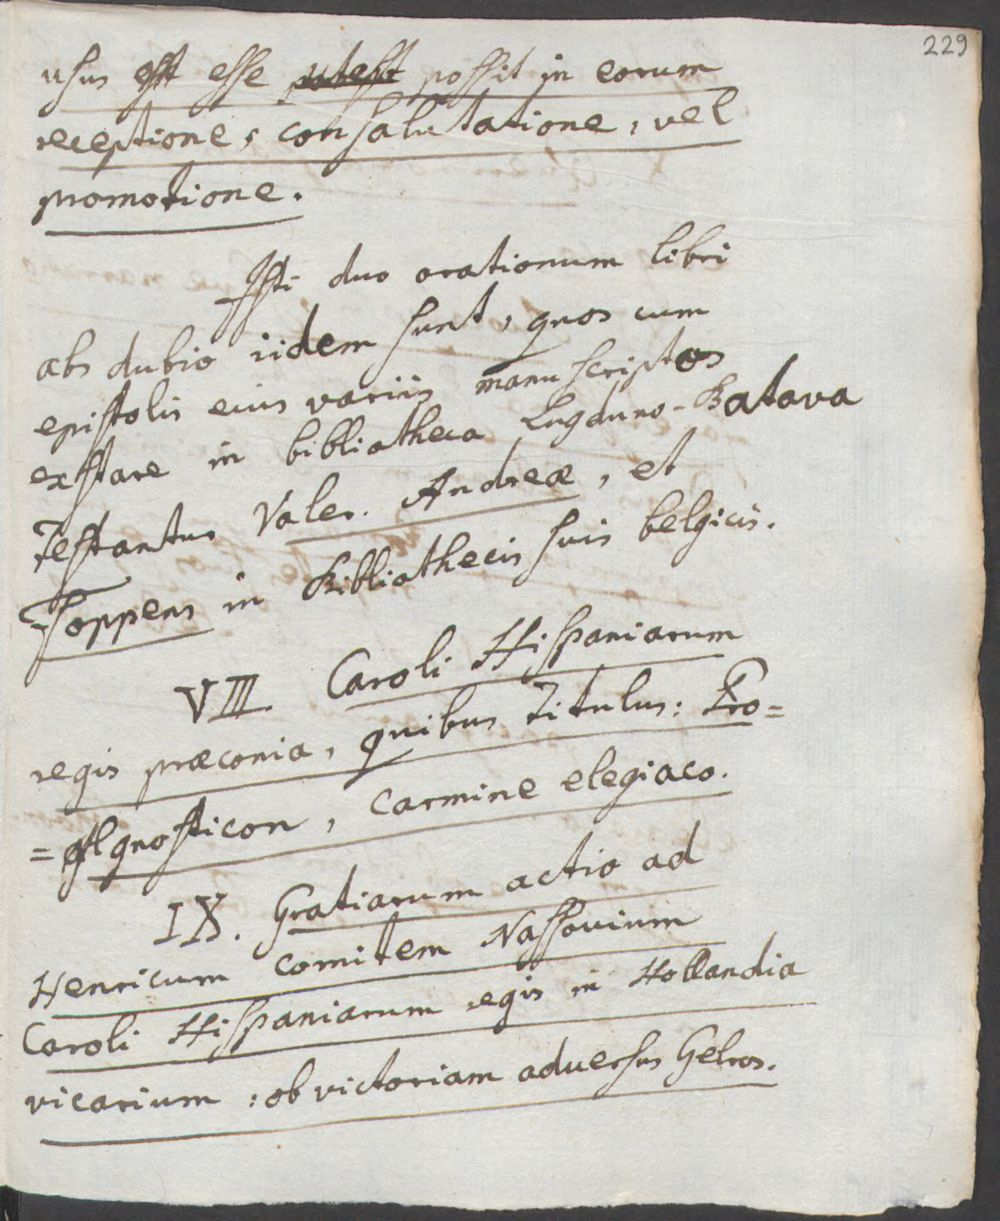 229
usus est esse potest possit in eorum
receptione, consalutatione, vel
promotione.
Isti duo orationum libri
abs dubio iidem sunt, quos cum
epistolis eius variis manuscriptos
exstare in bibliotheca Lugduno-Batava
testantur Valer. Andreæ, et
Foppens in Bibliothecis suis belgicis.
VIII. Caroli Hispaniarum
regis præconia, quibus titulus: Pro=
=gnosticon, carmine elegiaco.
IX. Gratiarum actio ad
Henricum comitem Nassovium
Caroli Hispaniarum regis in Hollandia
vicarium: ob victoriam adversus Gelros.